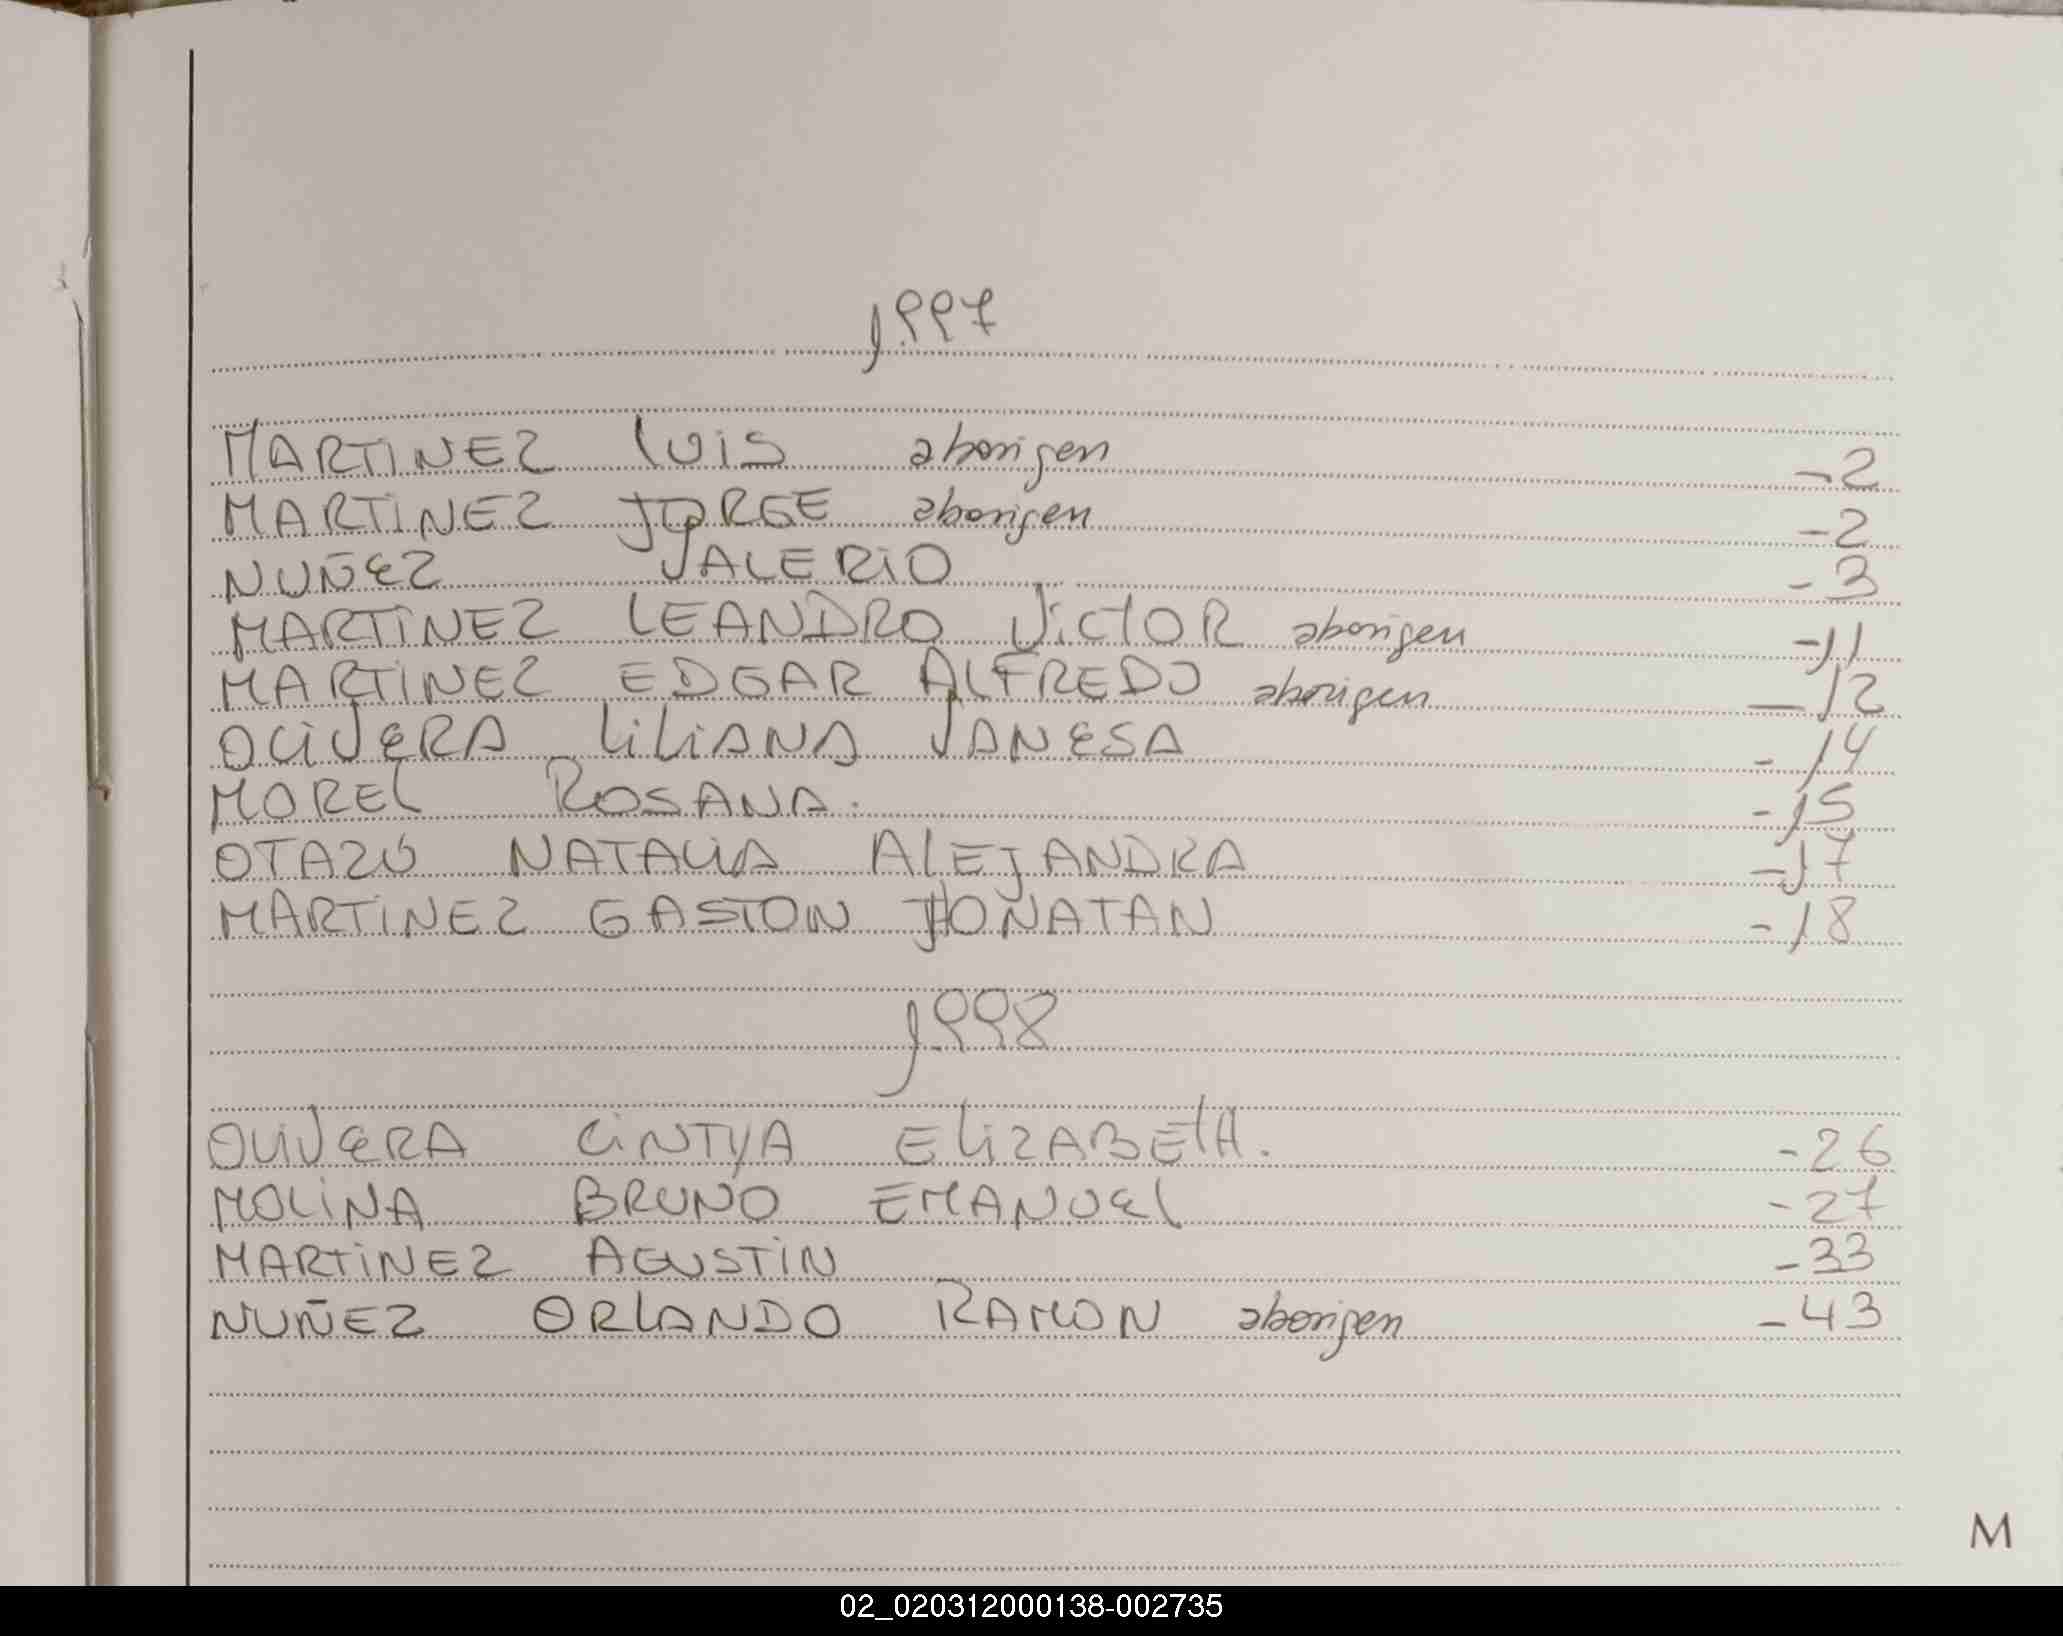 1.997
MARTINEZ LUIS aborigen -2
MARTINEZ JORGE aborigen -2
NUÑEZ VALERIO -3
MARTINEZ LEANDRO VICTOR aborigen -11
MARTINEZ EDGAR ALFREDO aborigen -12
OLIVERA LILIANA VANESA -14
MOREL ROSANA. -15
OTAZÚ NATALIA ALEJANDRA -17
MARTINEZ GASTON JHONATAN -18
1.998
OLIVERA CINTYA ELIZABETH. -26
MOLINA BRUNO EMANUEL -27
MARTINEZ AGUSTIN -33
NUÑEZ ORLANDO RAMON aborigen -43
M
02_020312000138-002735